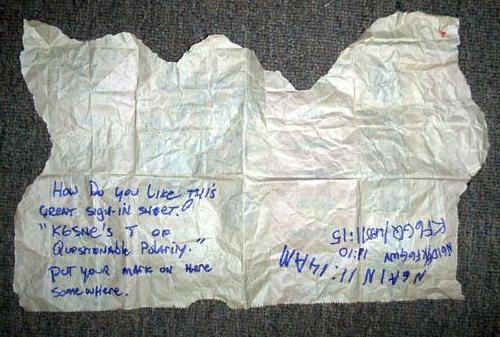 How Do you Like THis
GREAT SIGN-IN SHEET?
"K6SNE's T OF
Questionable Polarity."
Put your MARK ON Here
Somewhere.
N6AIN 11:14AM
11:10
11:15